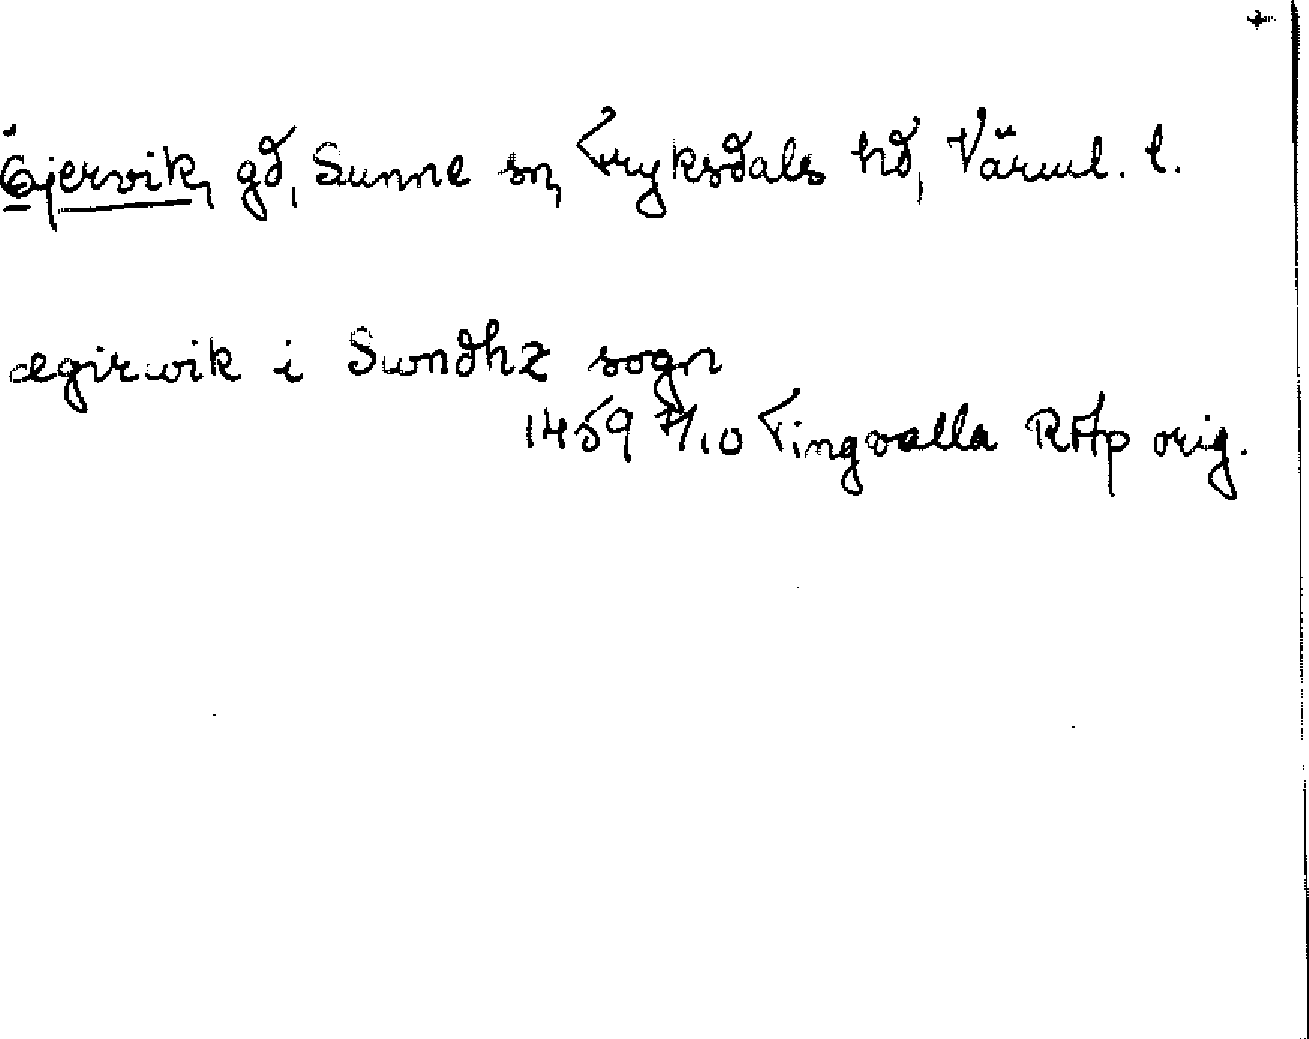 Öjervik, gd, Sunne sn, Fryksdals hd, Värml. l.
ægirwik i Swndhz sogn
1459 7/10 Tingvalla RAp orig.